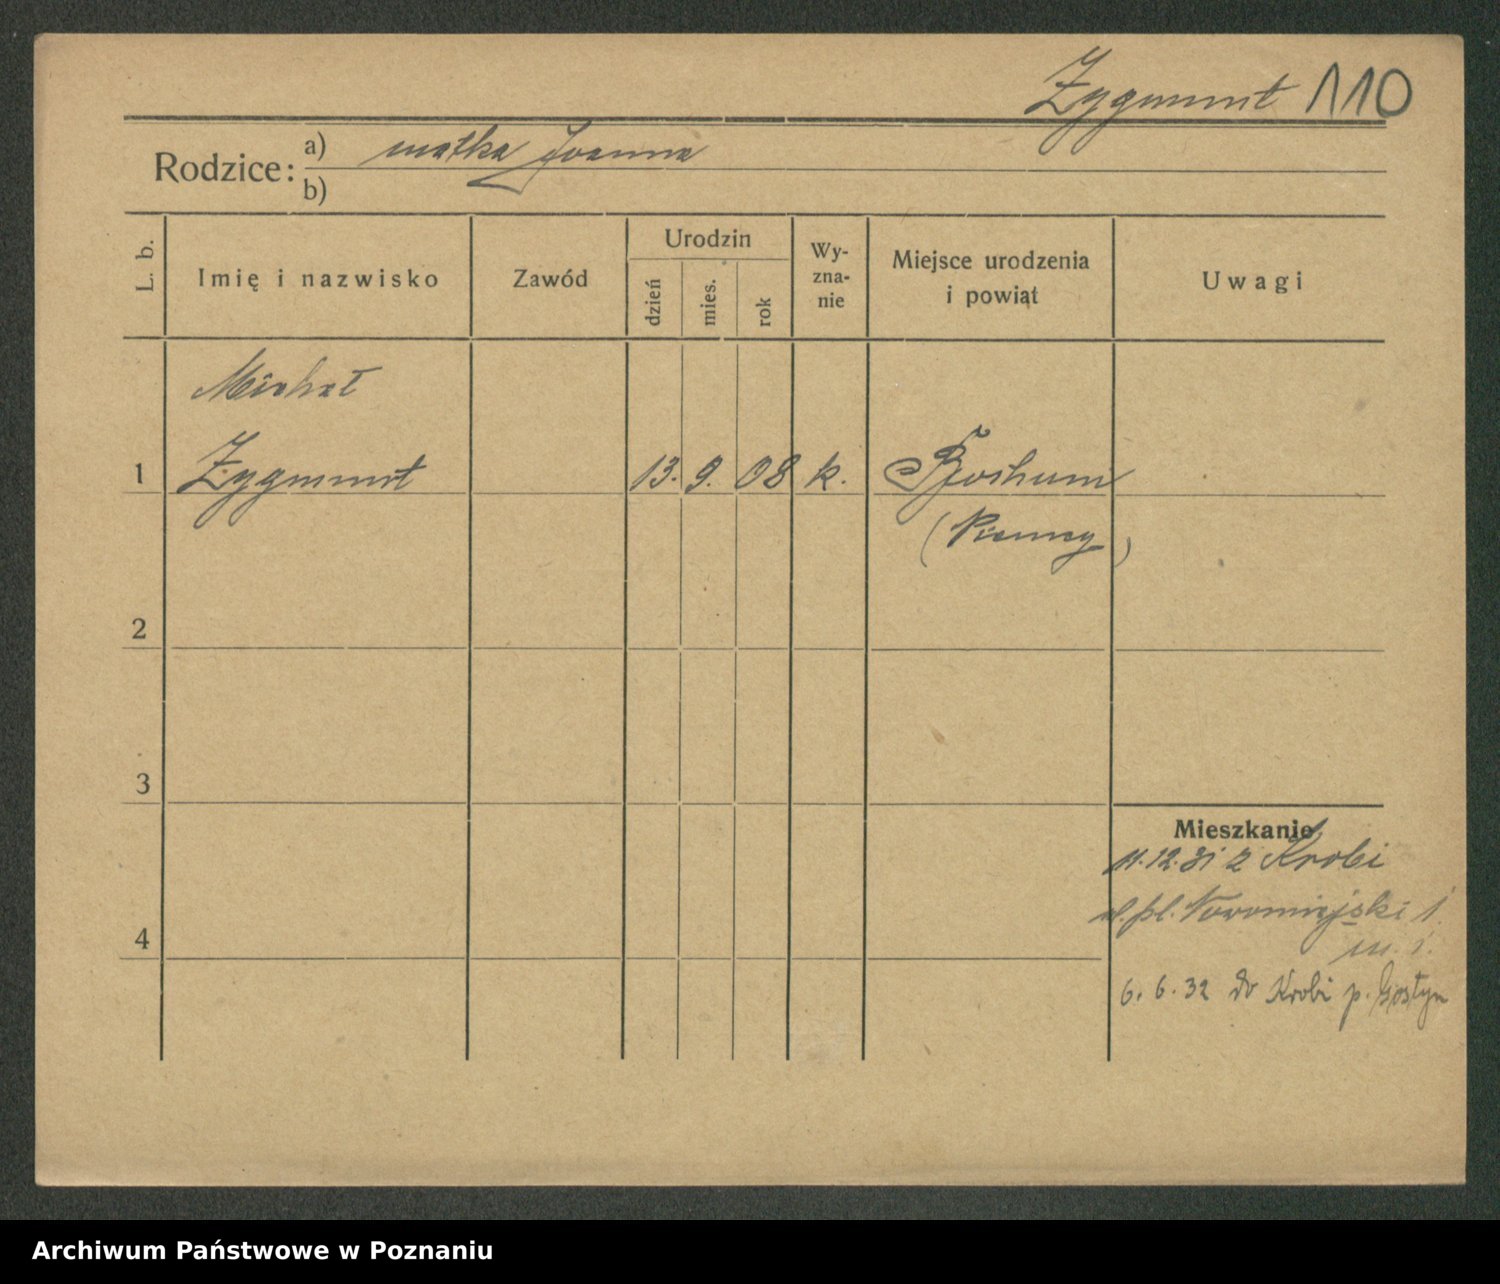 Zygmunt 110
Rodzice: a) matka Joanna
b)
L. b.
Imię i nazwisko
Zawód
Urodzin
dzień
mies.
rok
Wy-
zna-
nie
Miejsce urodzenia
i powiat
Uwagi
Michał
1 Zygmunt 13. 9. 08 k. Bochum
(Niemcy)
2
3
Mieszkanie
11.12.31 z Krobi
pl. Nowomiejski 1.
m. 1.
4
6. 6. 32 do Krobi p. Gostyn
Archiwum Państwowe w Poznaniu